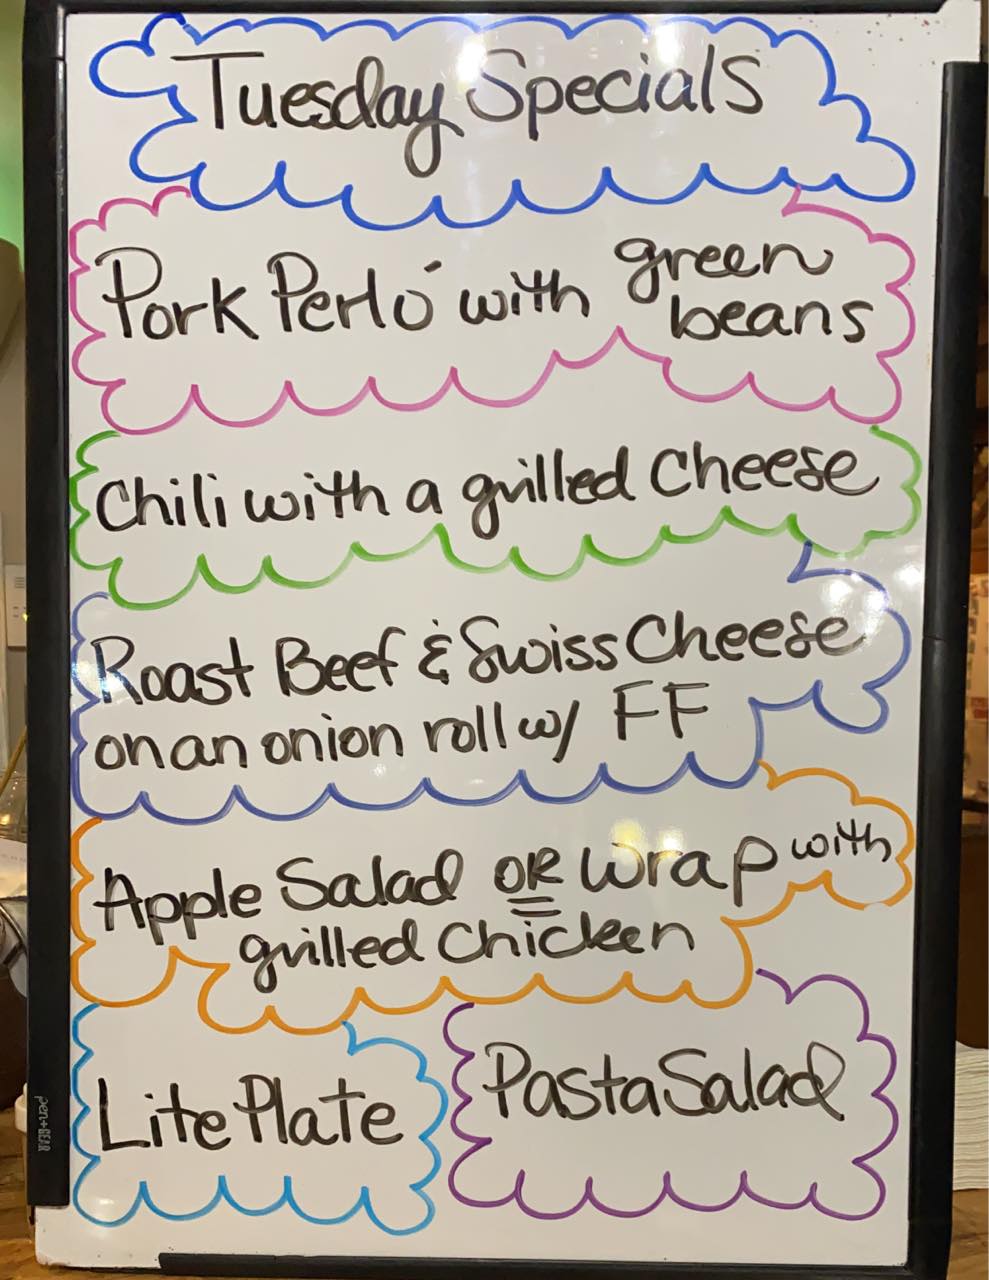 Tuesday Specials
Pork Perló with green
beans
Chili with a grilled Cheese
Roast Beef & Swiss Cheese
on an onion roll w/ FF
Apple Salad OR Wrap with
grilled Chicken
Lite Plate
Pasta Salad
pen+GEAR